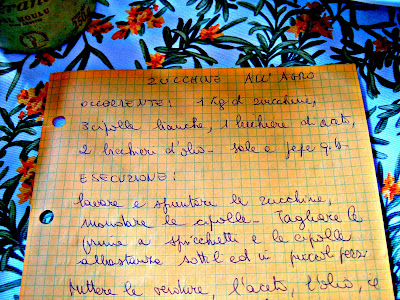 ZUCCHINE ALL'AGRO
OCCORRENTE: 1 Kg di zucchine,
3 cipolle bianche, 1 bicchiere di aceto,
2 bicchieri d'olio - sale e pepe q.b.
ESECUZIONE:
lavare e spuntare le zucchine,
mondare le cipolle - Tagliare le
prime a spicchietti e le cipolle
abbastanza sottili ed in piccoli pezzi
Mettere le verdure, l'aceto, l'olio, il